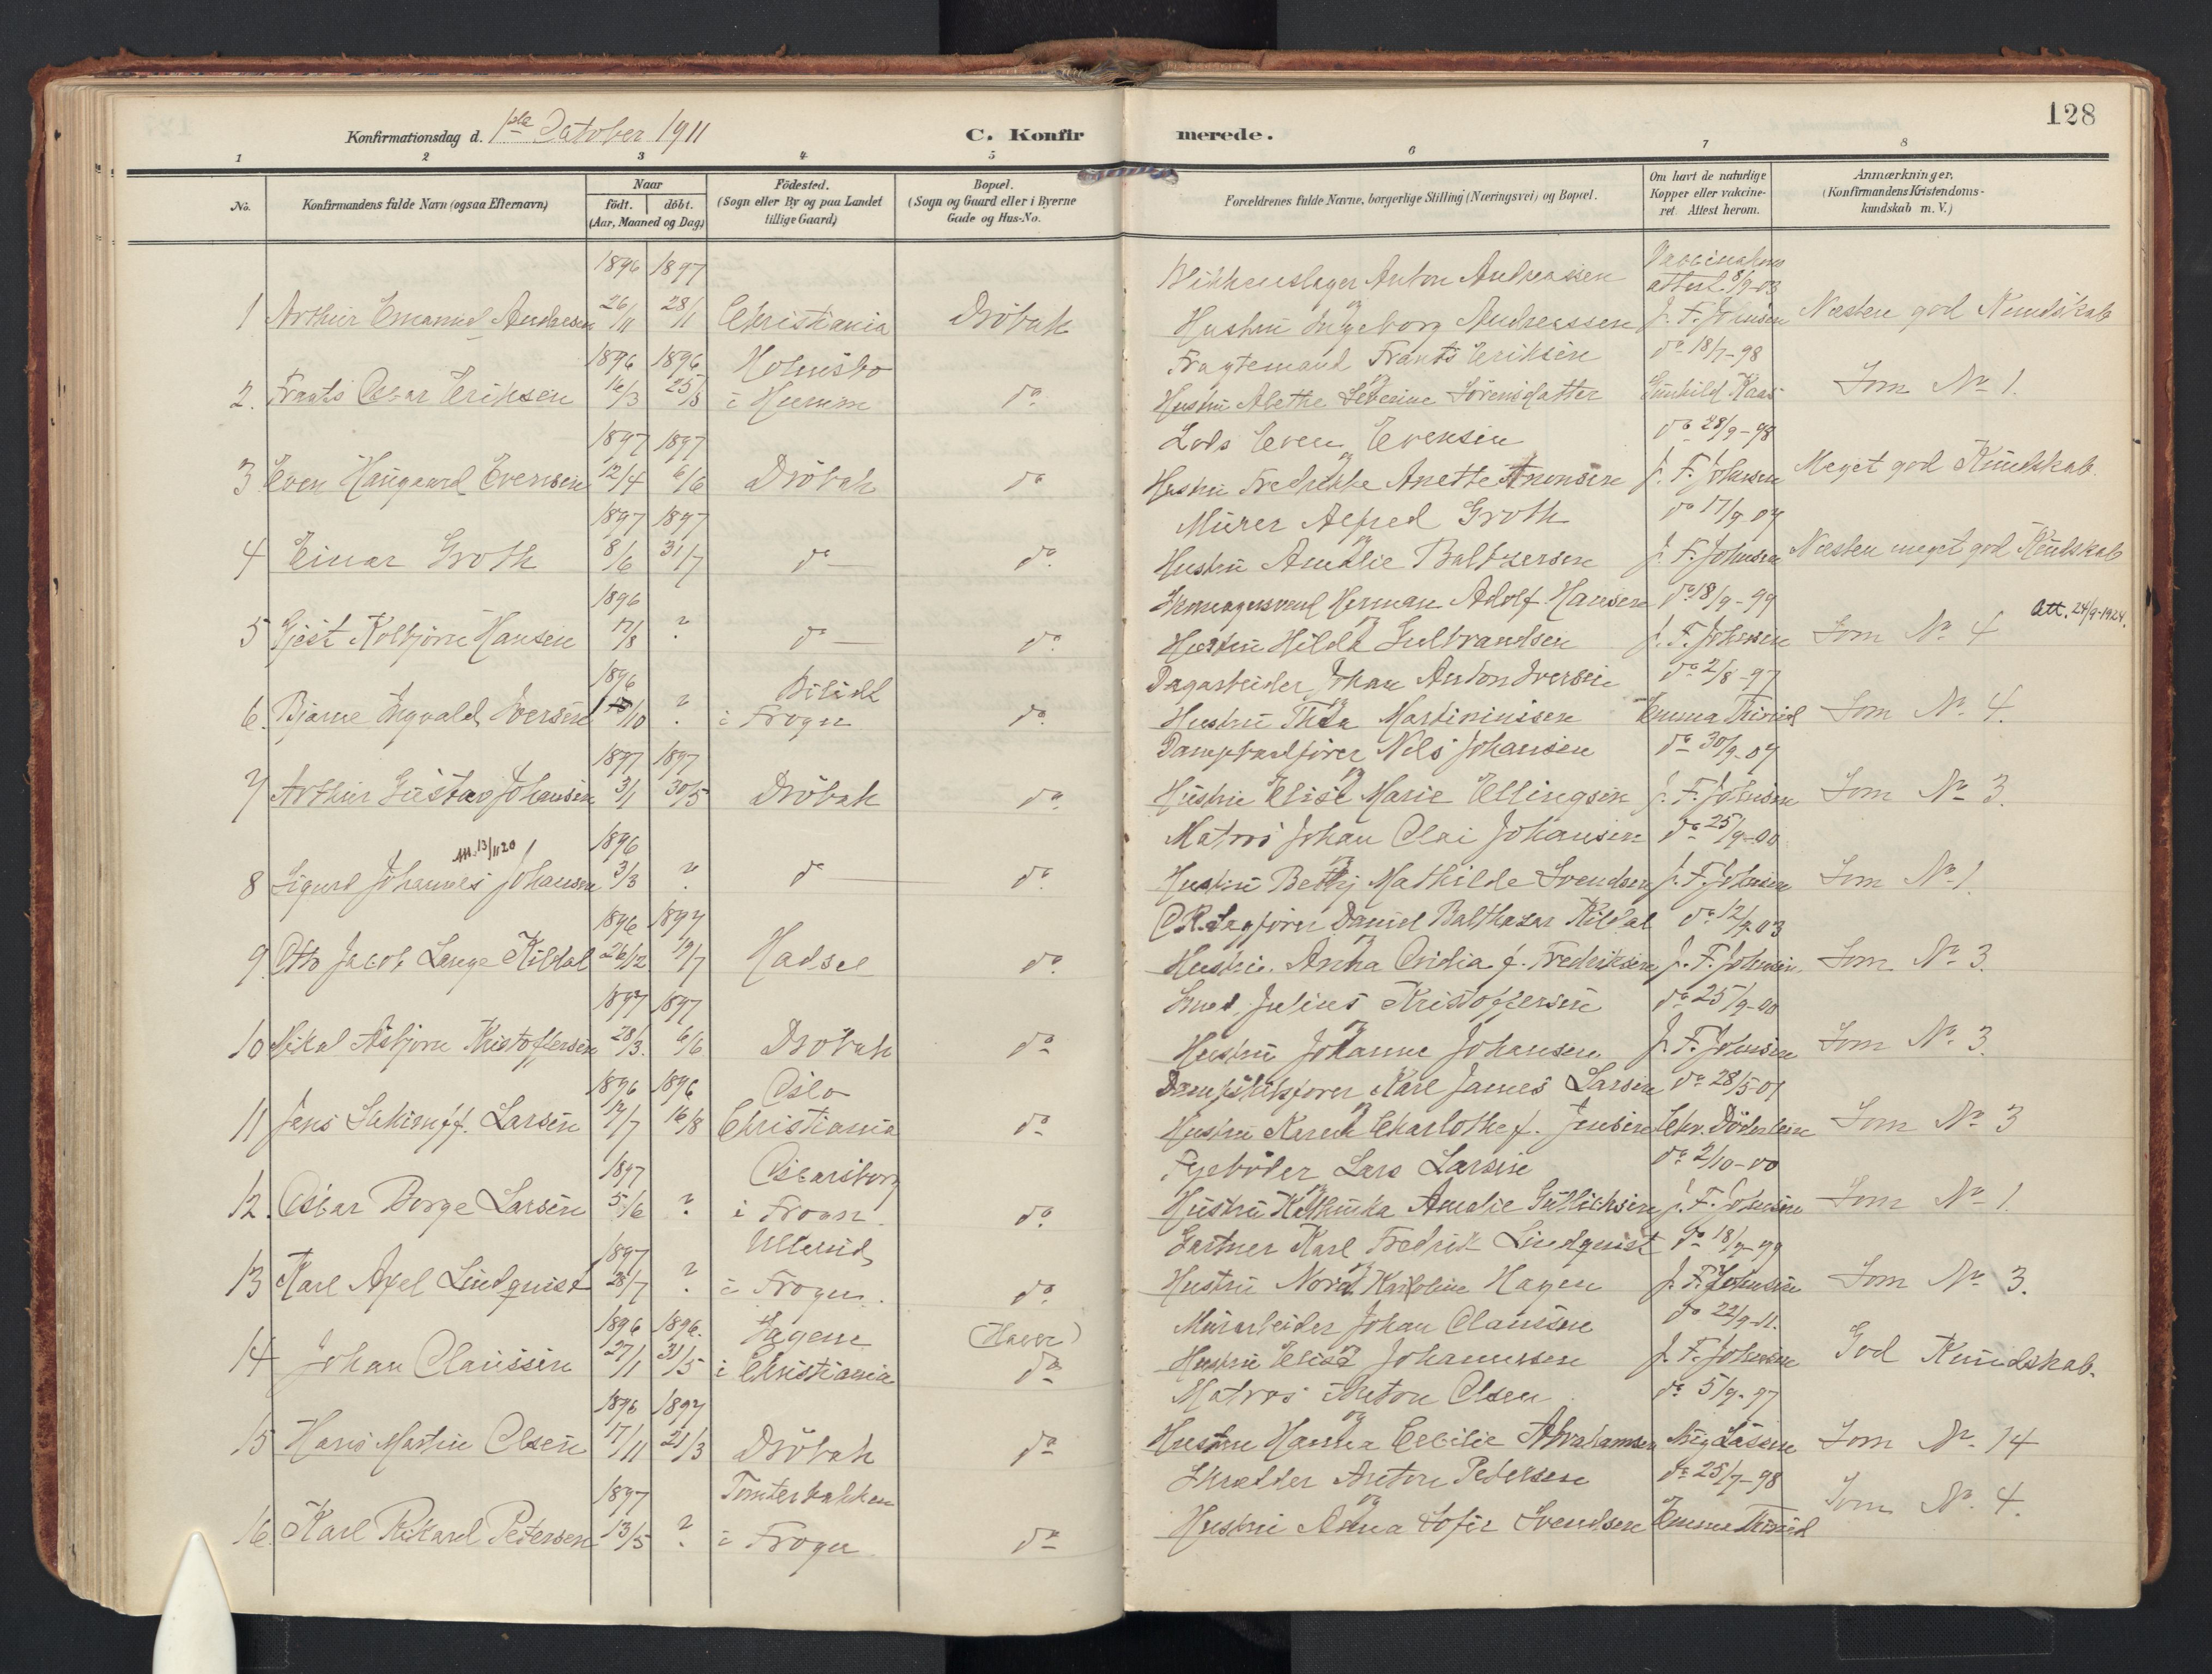 128
Konfirmationsdag d. 1ste October 1911
C. Konfirmerede.
1 2 3 4 5 6 7 8
No.
Konfirmandens fulde Navn (ogsaa Efternavn)
Naar
födt. döbt.
(Aar, Maaned og Dag)
Födested.
(Sogn eller By og paa Landet
tillige Gaard)
Bopæl.
(Sogn og Gaard eller i Byerne
Gade og Hus-No.
Forældrenes fulde Navne, borgerlige Stilling (Næringsvei) og Bopæl.
Om havt de naturlige
Kopper eller vakcine-
ret. Attest herom.
Anmærkninger.
(Konfirmandens Kristendoms-
kundskab m. V.)
1896 1897 Blikkenslager Anton Andreassen
attest 8/9-03
1 Arthur Emanuel 26/11 28/1 Christiania Dröbak Hustru Ingeborg Andreassen J. F. Johnsen Næsten god Kundskab
1896 1896 Holmsbo Fragtemand Frants Eriksen do 18/7-98
2. Frants Oscar Eriksen 16/3 25/5 i Hurum do Hustru Severine Sörensdatter Som No 1.
1897 1897 Lods Even Evensen do 28/9-98
3 Even Haugaard Evensen 12/4 6/6 Dröbak do Hustru Fredrikke Anette J. F. Johnsen Meget god Kundskab.
1897 1897 Murer Alfred Groth do 17/9-07
4 Einar Groth 8/6 31/7 do do Hustru Amalie Baltzersen J. F. Johnsen Næsten meget god Kundskab
1896 Herman Adolf Hansen do 18/9-99 Att. 24/9-1924.
5 Gjest Kolbjörn Hansen 17/8 ? do do Hustru Hilda Gulbrandsen J. F. Johnsen Som No 4
1896 Dagarbeider Johan Anton Iversen do 2/8-97
6. Bjarne Ingvald Iversen /10 ? i Frogn do Hustru Thea Martininssen Emma Som No 4.
1897 1897 Nils Johansen do 30/9-07
7 Arthur Gustav Johansen 3/1 30/5 Dröbak do Hustru Elise Marie Ellingsen J. F. Johnsen Som No 3.
13/11 20
1896 Matros Johan Olai Johansen do 25/9-00
8 Sigurd Johannes Johansen 3/3 ? do do Hustru Betty Mathilde Svendsen J. F. Johnsen Som No 1
1896 1897 O.R.Sagförer Daniel Balthazar Kildal do 12/9-03
9. Otto Jacob Lange Kildal 26/12 19/7 Hadsel do Hustru Anna Ovidia f. Fredriksen J. F. Johnsen Som No 3.
1897 1897 Smed Julius Kristoffersen do 25/9-00
10 Asbjörn Kristoffersen 28/3. 6/6 Dröbak do Hustru Johanne Johansen J. F. Johnsen Som No 3.
1896 1896 Oslo Dampskibsförer Karl James Larsen do 28/5-01
11 Jens Larsen 17/7 16/8 Christiania do Hustru Karen Charlotte f. Jensen Chr. Döderlein Som No 3
1897 Oscarsborg Fyrböder Lars Larsen do 2/10-00
12. Oscar Borge Larsen 5/6 ? i Frogn do Hustru Amalie J. F. Johnsen Som No 1.
1897 Ullerud Gartner Karl Fredrik Lindquist do 18/9-99
13 Karl Axel Lindquist 28/7 ? i Frogn. do Hustru Nora Karoline Hagen J. F. Johnsen Som No 3.
1896 1896. Hagene (Haver) Murarbeider Johan Claussen do 22/9-11.
14 Johan Claussen 27/1 31/5 i Christiania do Hustru Elise Johannessen J. F. Johnsen God Kundskab.
1896 1897 Matros Anton Olsen do 5/9-97
15 Hans Martin Olsen 17/11 21/3 Dröbak do Hustru Hanna Cecilie Abrahamsen Som No 14
1897 Tomterbakken Skrædder Anton Pedersen do 25/7-98
16. Karl Rikard Petersen 13/5 ? i Frogn do Hustru Anna Sofie Svendsen Emma Som No 4.